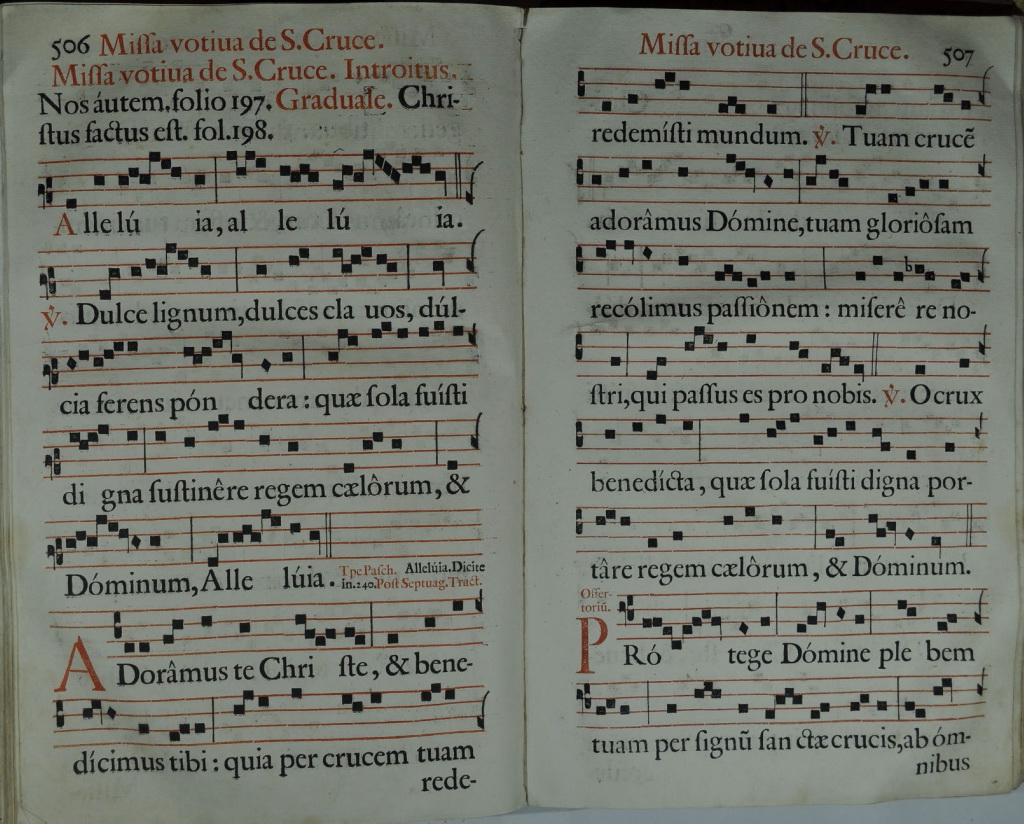 506 Missa votiua de S. Cruce.
Missa votiua de S. Cruce. Introitus.
Nos áutem, folio 197. Graduale. Chri-
stus factus est. fol. 198.
Alle lú ia, al le lú ia.
℣. Dulce lignum, dulces cla uos, dúl-
cia ferens pón dera: quæ sola fuísti
di gna sustinêre regem cælôrum, &
Dóminum, Alle lúia. Tpe Pasch. Allelúia. Dicite
in. 240. Post Septuag. Tract.
ADorâmus te Chri ste, & bene-
dícimus tibi: quia per crucem tuam
rede-
Missa votiua de S. Cruce. 507
redemísti mundum. ℣. Tuam crucẽ
adorâmus Dómine, tuam gloriôsam
recólimus passiônem: miserê re no-
stri, qui passus es pro nobis. ℣. O crux
benedícta, quæ sola fuísti digna por-
târe regem cælôrum, & Dóminum.
Offer-
toriũ.
PRó tege Dómine ple bem
tuam per signũ san ctæ crucis, ab óm-
nibus